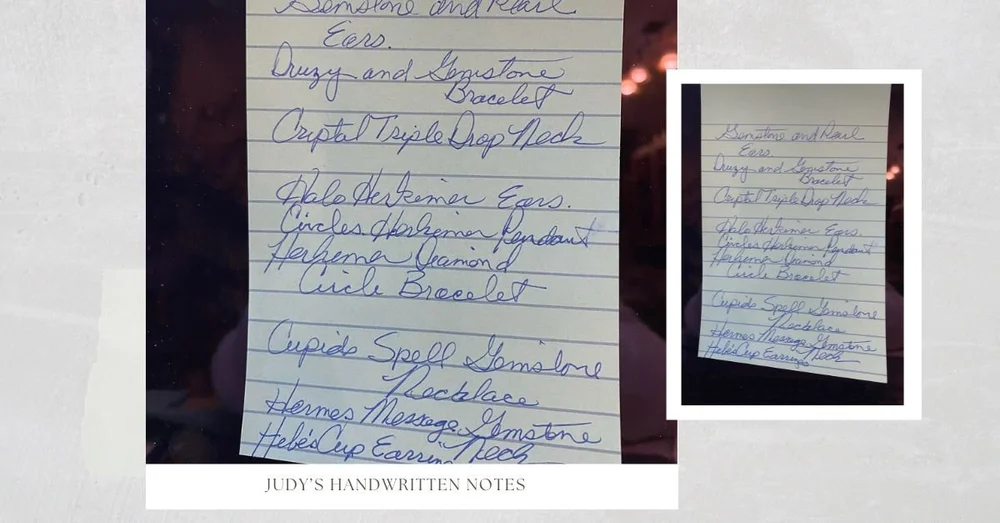 Gemstone and Pearl
Ears.
Druzy and Gemstone
Bracelet
Crystal Triple Drop Neck
Halo Herkimer Ears.
Circles Herkimer Pendant
Herkemer Diamond
Circle Bracelet
Cupids Spell Gemstone
Necklace
Hermes Message Gemstone
Hebe's Cup Earrin Neck
JUDY'S HANDWRITTEN NOTES
Gemstone and Pearl
Ears.
Druzy and Gemstone
Bracelet
Crystal Triple Drop Neck
Halo Herkimer Ears.
Circles Herkimer Pendant
Herkemer Diamond
Circle Bracelet
Cupids Spell Gemstone
Necklace
Hermes Message Gemstone
Hebe's Cup Earrings Neck